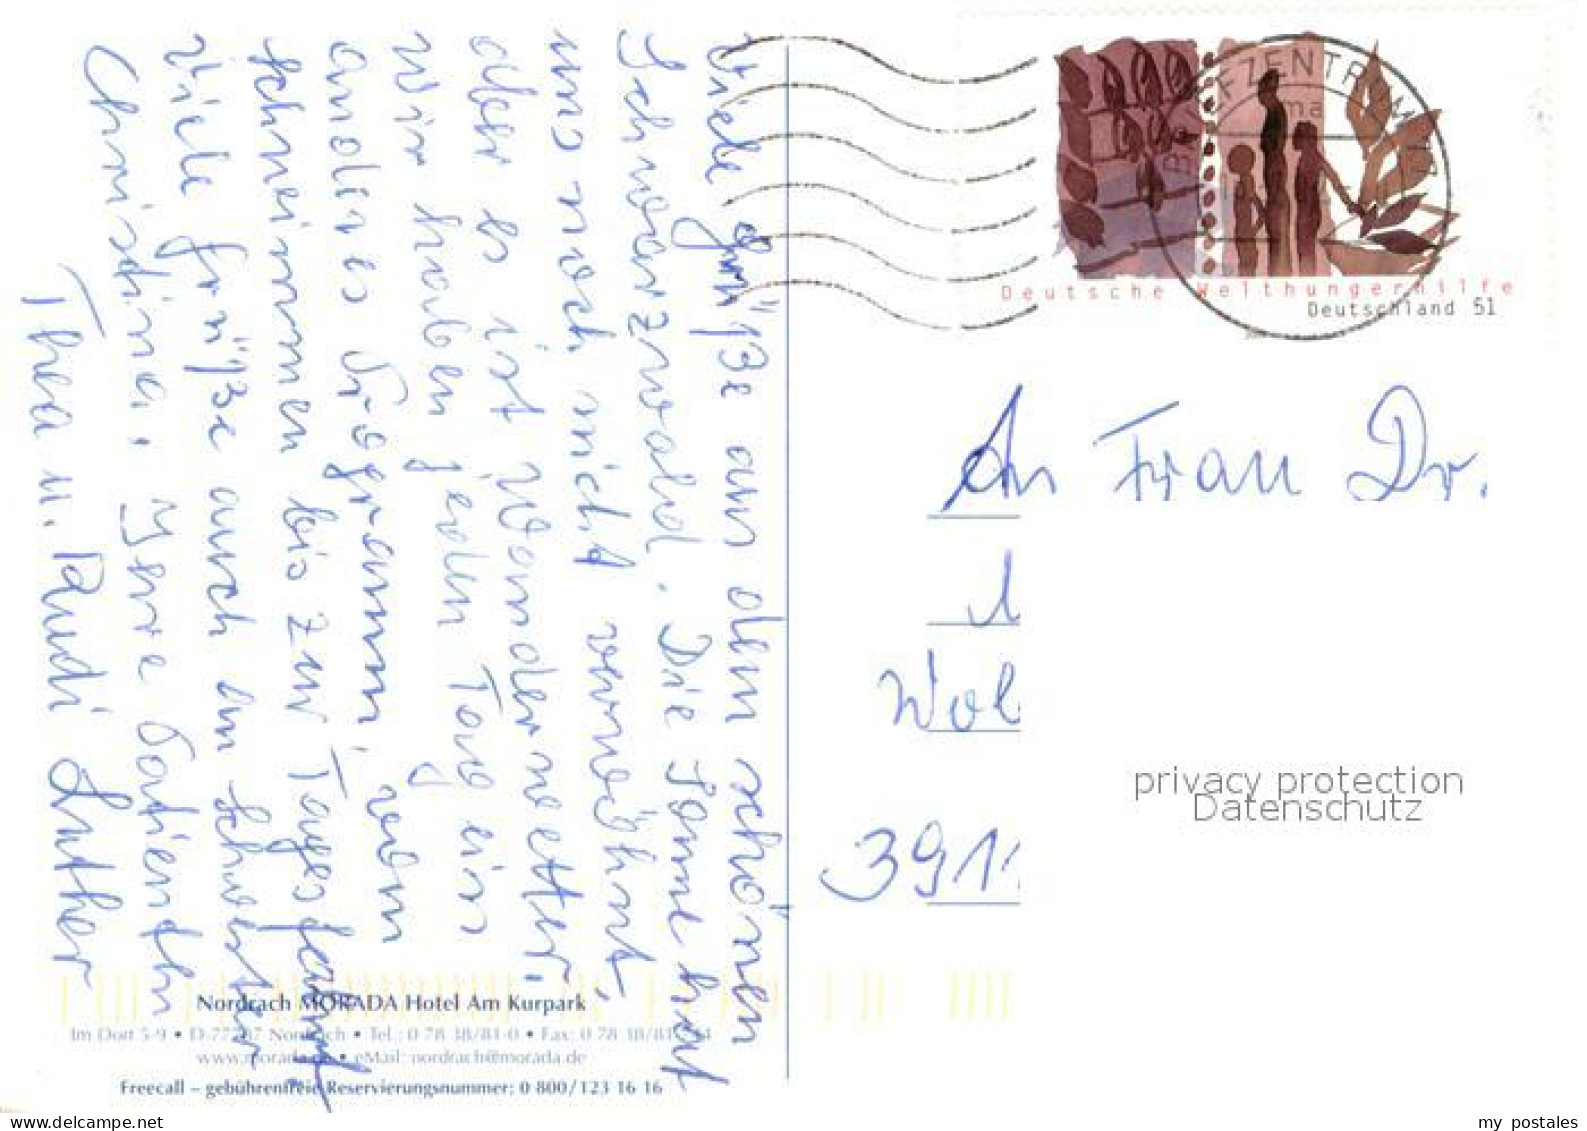 Viele Grüße aus dem schönen
Schwarzwald. Die Sonne hat
uns noch nicht verwöhnt,
aber es ist Wanderwetter.
Wir haben jeden Tag ein
anderes Programm, vom
schwimmen bis zur Tagesfahrt.
Viele Grüße auch an Schwester
Christina. Ihre Patienten
Thea u. Rudi Luther
BRIEFZENTRUM
ma
Deutsche Welthungerhilfe
Deutschland 51
An Frau Dr.
Wol
3911
privacy protection
Datenschutz
Nordrach MORADA Hotel Am Kurpark
Im Dorf 5-9 • D-77787 Nordrach • Tel.: 0 78 38/81-0 • Fax: 0 78 38/81
www.morada.de • eMail: nordrach@morada.de
Freecall – gebührenfreie Reservierungsnummer: 0 800/123 16 16
www.delcampe.net
my_postales